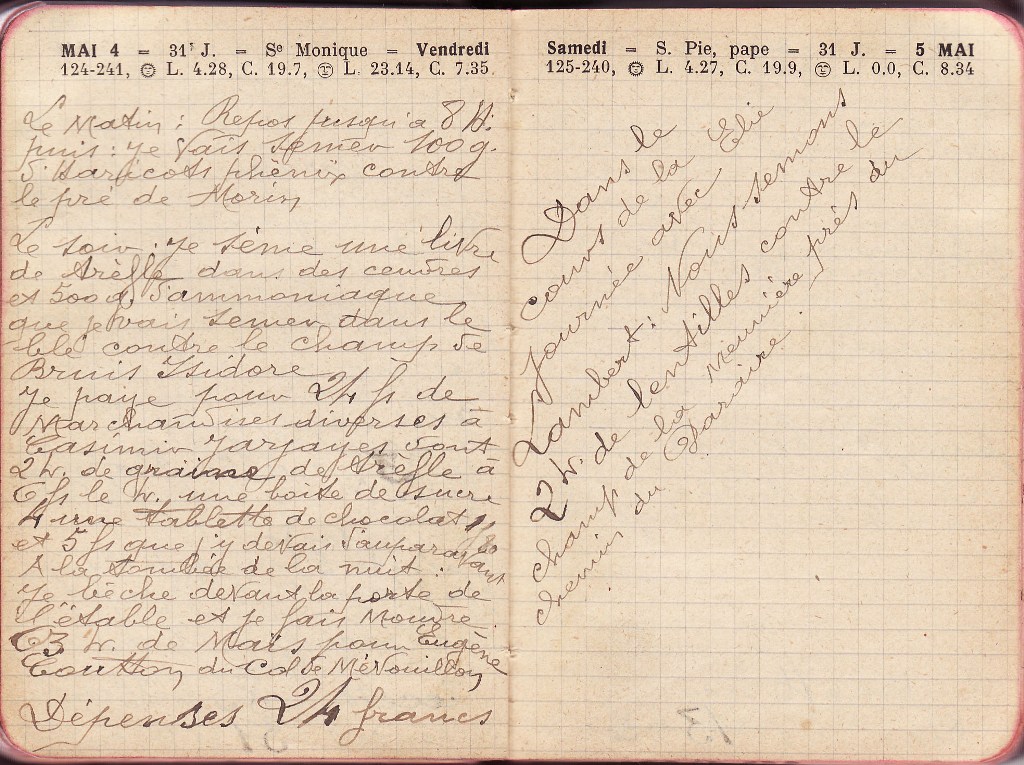 MAI 4 = 31 J. = Se Monique = Vendredi
124-241, L. 4.28, C. 19.7, L. 23.14, C. 7.35
Le Matin : Repos jusqu'à 8 H.
puis : je vais semer 100 g.
d'Haricots phénix contre
le pré de Morin
Le soir : je sème une livre
de trèfle dans des cendres
et 500 g. d'ammoniaque
que je vais semer dans le
blé contre le champ de
Bruis Isidore
Je paye pour 24 fs de
Marchandises diverses à
Casimir Jarjayes dont
2 k. de graine de trèfle à
le k. une boite de sucre
4 une tablette de chocolat
et 5 fs que j'y devais d'auparavant
A la tombée de la nuit :
Je bêche devant la porte de
l'étable et je fais Moudre
63 k. de Maïs pour Eugène
du Col de Mévouillon
Dépenses 24 francs
Samedi = S. Pie, pape = 31 J. = 5 MAI
125-240, L. 4.27, C. 19.9, L. 0.0, C. 8.34
Dans le
cours de la
Journée avec Elie
Lambert : Nous semons
2 k. de lentilles contre le
champ de la Meunière près du
chemin du